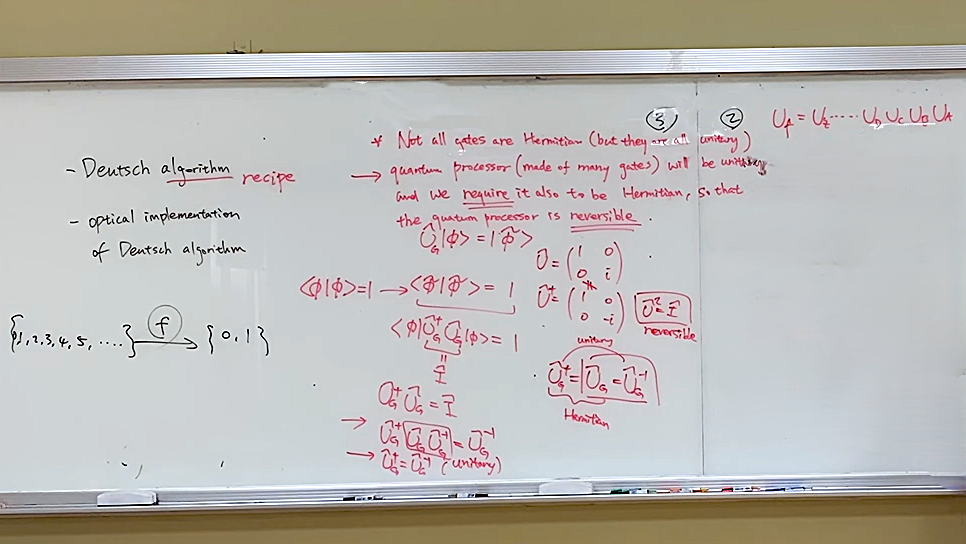 - Deutsch algorithm recipe
- optical implementation
of Deutsch algorithm
{0,1,2,3,4,5,....} f → {0,1}
③ ②
* Not all gates are Hermitian (but they are all unitary)
→ quantum processor (made of many gates) will be unitary
and we require it also to be Hermitian, so that
the quatum processor is reversible.
Û_G|Φ> = |Φ̃>
<Φ|Φ>=1 → <Φ̃|Φ̃> = 1
<Φ|Û_G⁺Û_G|Φ> = 1
=
Î
Û_G⁺Û_G = Î
→ Û_G⁺ Û_G Û_G⁻¹ = Û_G⁻¹
→ Û_G⁺ = Û_G⁻¹ (unitary)
Û = (1 0
0 i)
Û⁺ = (1 0
0 -i)
Û² = Î
reversible
unitary
Û_G⁺ = Û_G = Û_G⁻¹
Hermitian
U_f = U_Z ..... U_D U_C U_B U_A